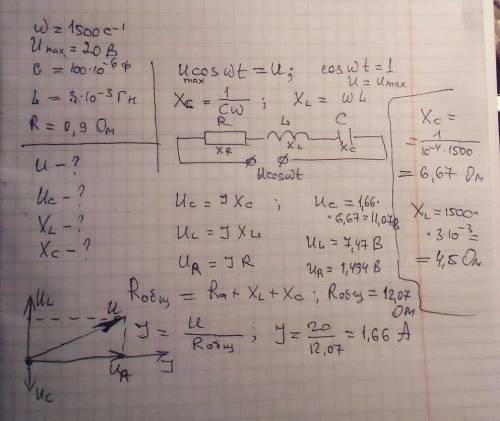 W = 1500 c⁻¹
Umax = 20 В
C = 100·10⁻⁶ Ф
L = 3·10⁻³ Гн
R = 0,9 Ом
U - ?
UC - ?
XL - ?
XC - ?
Umax cos wt = U; cos wt = 1
U = Umax
XC = 1/Cω ; XL = ωL
R L C
XR XL XC
Ucoswt
UC = JXC ; UC = 1,66·
·6,67 = 11,07В
UL = JXL UL = 7,47 В
UR = JR UR = 1,494 В
Rобщ = Rа + XL + XC ; Rобщ = 12,07
Ом
J = U/Rобщ ; J = 20/12,07 = 1,66 А
XC =
= 1/10⁻⁴·1500
= 6,67 Ом
XL = 1500·
·3·10⁻³ =
= 4,5 Ом
UL
U
UR J
UC